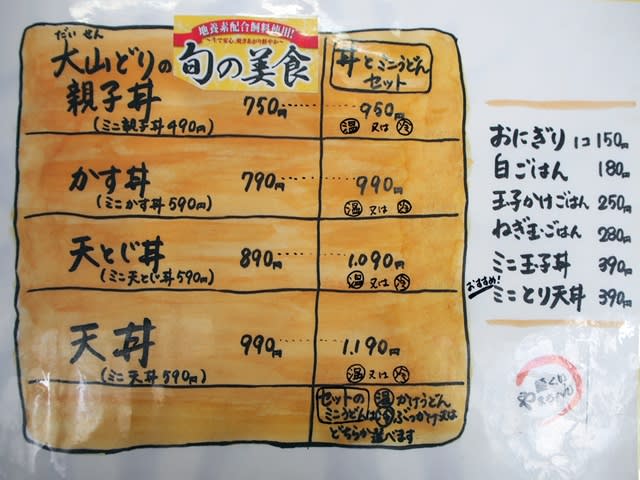 地養素配合飼料使用!
旬の美食
だいせん
大山どりの
親子丼 750円 950円
(ミニ親子丼490円) 温又は冷
丼とミニうどん
セット
かす丼 790円 990円
(ミニかす丼590円) 温又は冷
天とじ丼 890円 1.090円
(ミニ天とじ丼590円) 温又は冷
天丼 990円 1.190円
(ミニ天丼590円) 温又は冷
セットの
ミニうどんは
温かけうどん
冷ぶっかけ又は
どちらか選べます
おにぎり 1コ 150円
白ごはん 180円
玉子かけごはん 250円
ねぎ玉ごはん 280円
ミニ玉子丼 390円
おすすめ!
ミニとり天丼 390円